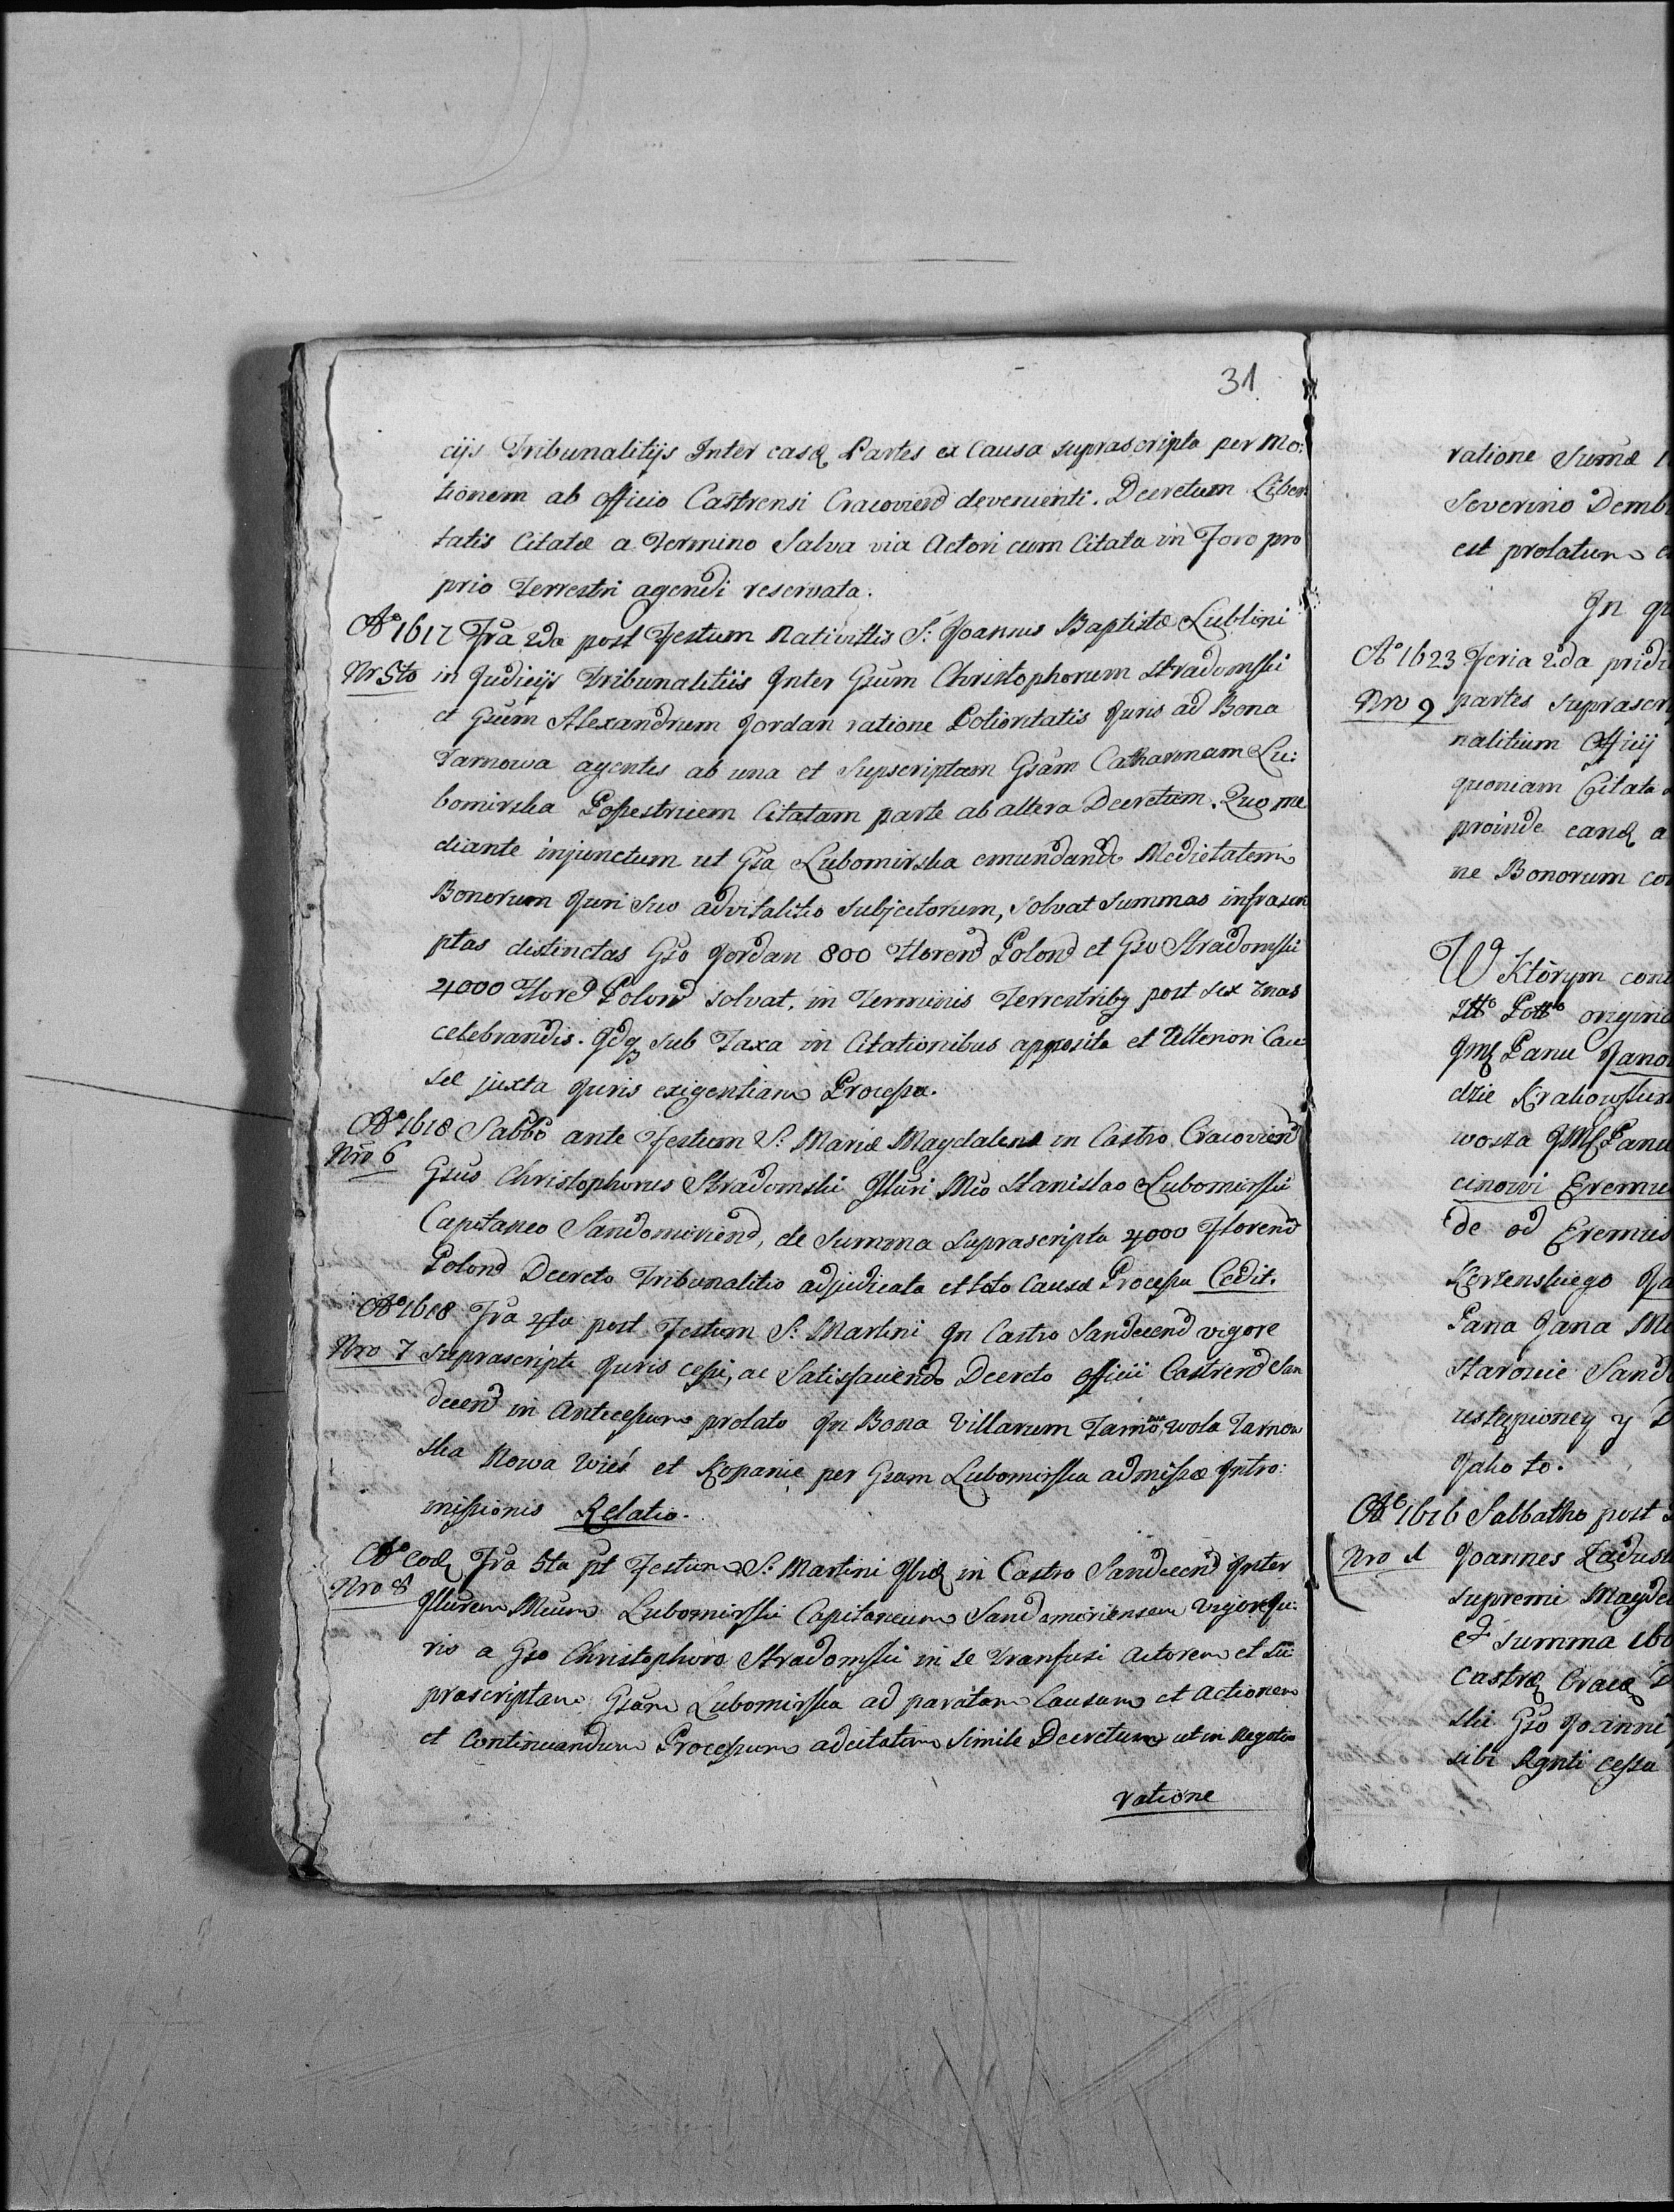 31
cijs Tribunalitijs Inter easd Partes ex Causa suprascripta per Mo:
tionem ab officio Castrensi Cracoviend devenienti. Decretum Liber
tatis Citatæ a Termino Salva via Actori cum Citata in Foro pro
prio Terrestri agendi reservata.
Ao 1617 Fra 2da post Festum Nativittis S: Joannis Baptistæ Lublini
Nr 5to in Judicijs Tribunalitiis Inter Gsum Christophorum Stradomski
et Gsum Alexandrum Jordan ratione Potioritatis Juris ad Bona
Tarnowa agentes ab una et Supscriptam Gsam Catharinam Lu:
bomirska Possestricem Citatam parte ab altera Decretum. Quo me
diante injunctum ut Gsa Lubomirska emundando Medietatem
Bonorum Juri Suo advitalitio Subjectorum, solvat Summas infrascri
ptas distinctas Gso Jordan 800 Florend Polond et Gso Stradomski
4000 Flored Polond solvat, in Terminis Terrestribq post sex 7nas
celebrandis. Idq sub Taxa in Citationibus apposita et Ulteriori Cau
sæ juxta Juris exigentiam Processu.
Ao 1618 Sabbo ante Festum S: Mariæ Magdalenæ in Castro Cracoviend
Nro 6 Gsus Christophorus Stradomski Illuri Mco Stanislao Lubomirski
Capitaneo Sandomiriend, de Summa Suprascripta 4000 Florend
Polond Decreto Tribunalitio adjudicata et toto Causæ Processu Cedit.
Ao 1618 Fra 4ta post Festum S: Martini In Castro Sandecend vigore
Nro 7 suprascripti Juris cessi, ac Satisfaciendo Decreto officii Castrend San
decend in Antecessum prolato In Bona Villarum Tarnowa, Wola Tarnow
ska Nowa Wieś et Kopanie per Gsam Lubomirska admissæ Intro:
missionis Relatio.
Ao eod Fra 5ta pt Festum S: Martini Ibid in Castro Sandecend Inter
Nro 8 Illurem Mcum Lubomirski Capitaneum Sandomiriensem Vigore Ju:
ris a Gso Christophoro Stradomski in se Transfusi Actorem et Su
prascriptam Gsam Lubomirska ad paratam Causam et Actionem
et Continuandum Processum adcitatam Simile Decretum ut in Negotio
ratione
ratione Sumæ
Severino Demb
est prolatum
In
Ao 1623 Feria 2da pridi
Nro 9 partes suprascri
nalitium Officij
quoniam Citata
proinde eand a
ne Bonorum con
W Którym cont
origina
Panu Jano
dzie Krakowskim
wosta JMć Panu
cinowi Eremu
de od Eremus
Korzenskiego
Pana Jana
Staroscie Sand
ustąpioney y
Jako to.
Ao 1616 Sabbatho post
Nro 1 Joannes
supremi Magde
et summa 160
Castrd Cracd
ski Gso Joanni
sibi Rgnti cessa